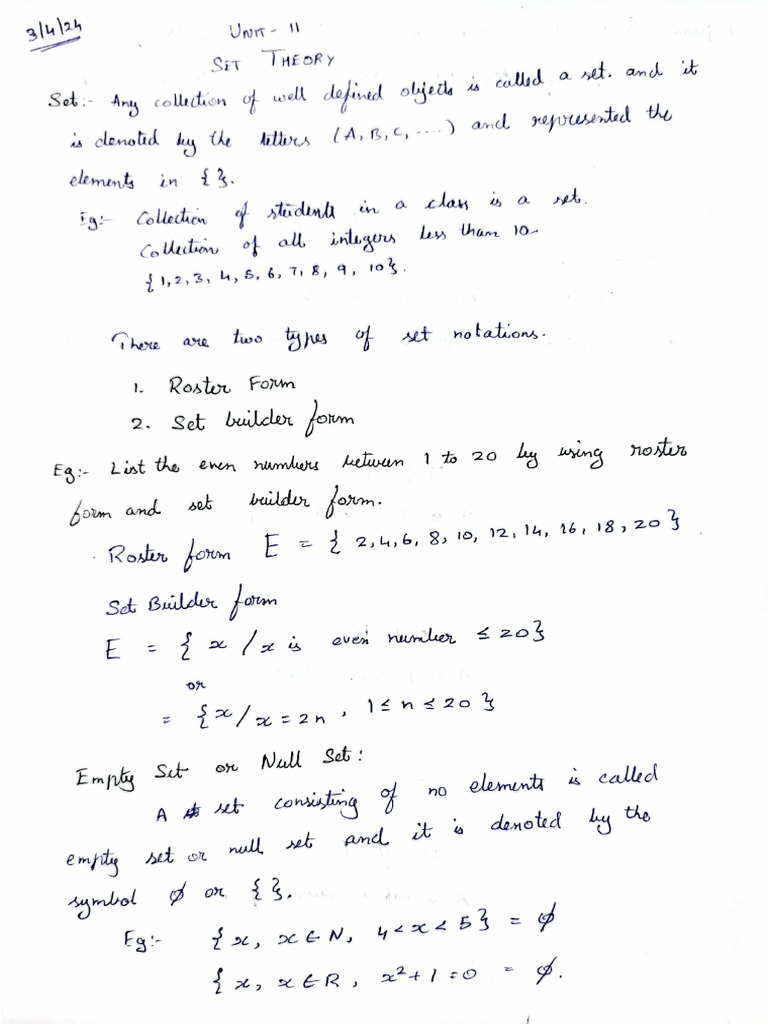 3/4/24
UNIT - II
SET THEORY
Set:- Any collection of well defined objects is called a set. and it
is denoted by the letters (A, B, C, ....) and represented the
elements in { }.
Eg:- Collection of students in a class is a set.
Collection of all integers less than 10
{1, 2, 3, 4, 5, 6, 7, 8, 9, 10}.
There are two types of set notations.
1. Roster Form
2. Set builder form
Eg:- List the even numbers between 1 to 20 by using roster
form and set builder form.
Roster form E = { 2, 4, 6, 8, 10, 12, 14, 16, 18, 20 }
Set Builder form
E = { x / x is even number ≤ 20}
or
= {x / x = 2n , 1 ≤ n ≤ 20 }
Empty Set or Null Set :
A set consisting of no elements is called
empty set or null set and it is denoted by the
symbol ∅ or { }.
Eg:- {x, x ∈ N, 4 < x < 5} = ∅
{ x, x ∈ R, x² + 1 = 0 = ∅.